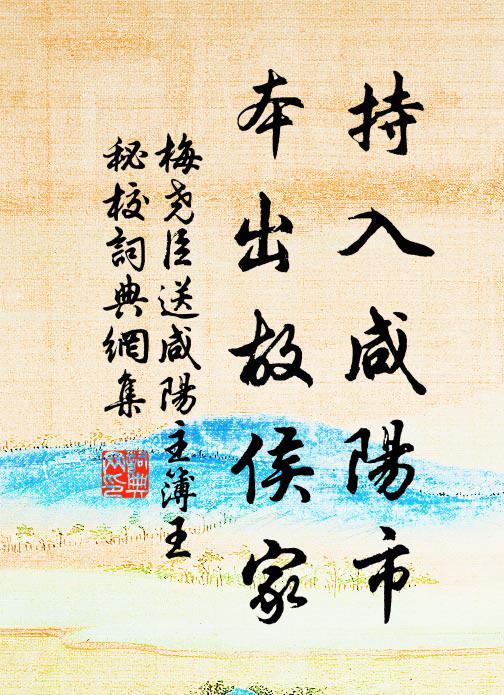 持入咸陽市
本出故侯家
梅堯臣送咸陽主薄王
秘校詞典網集